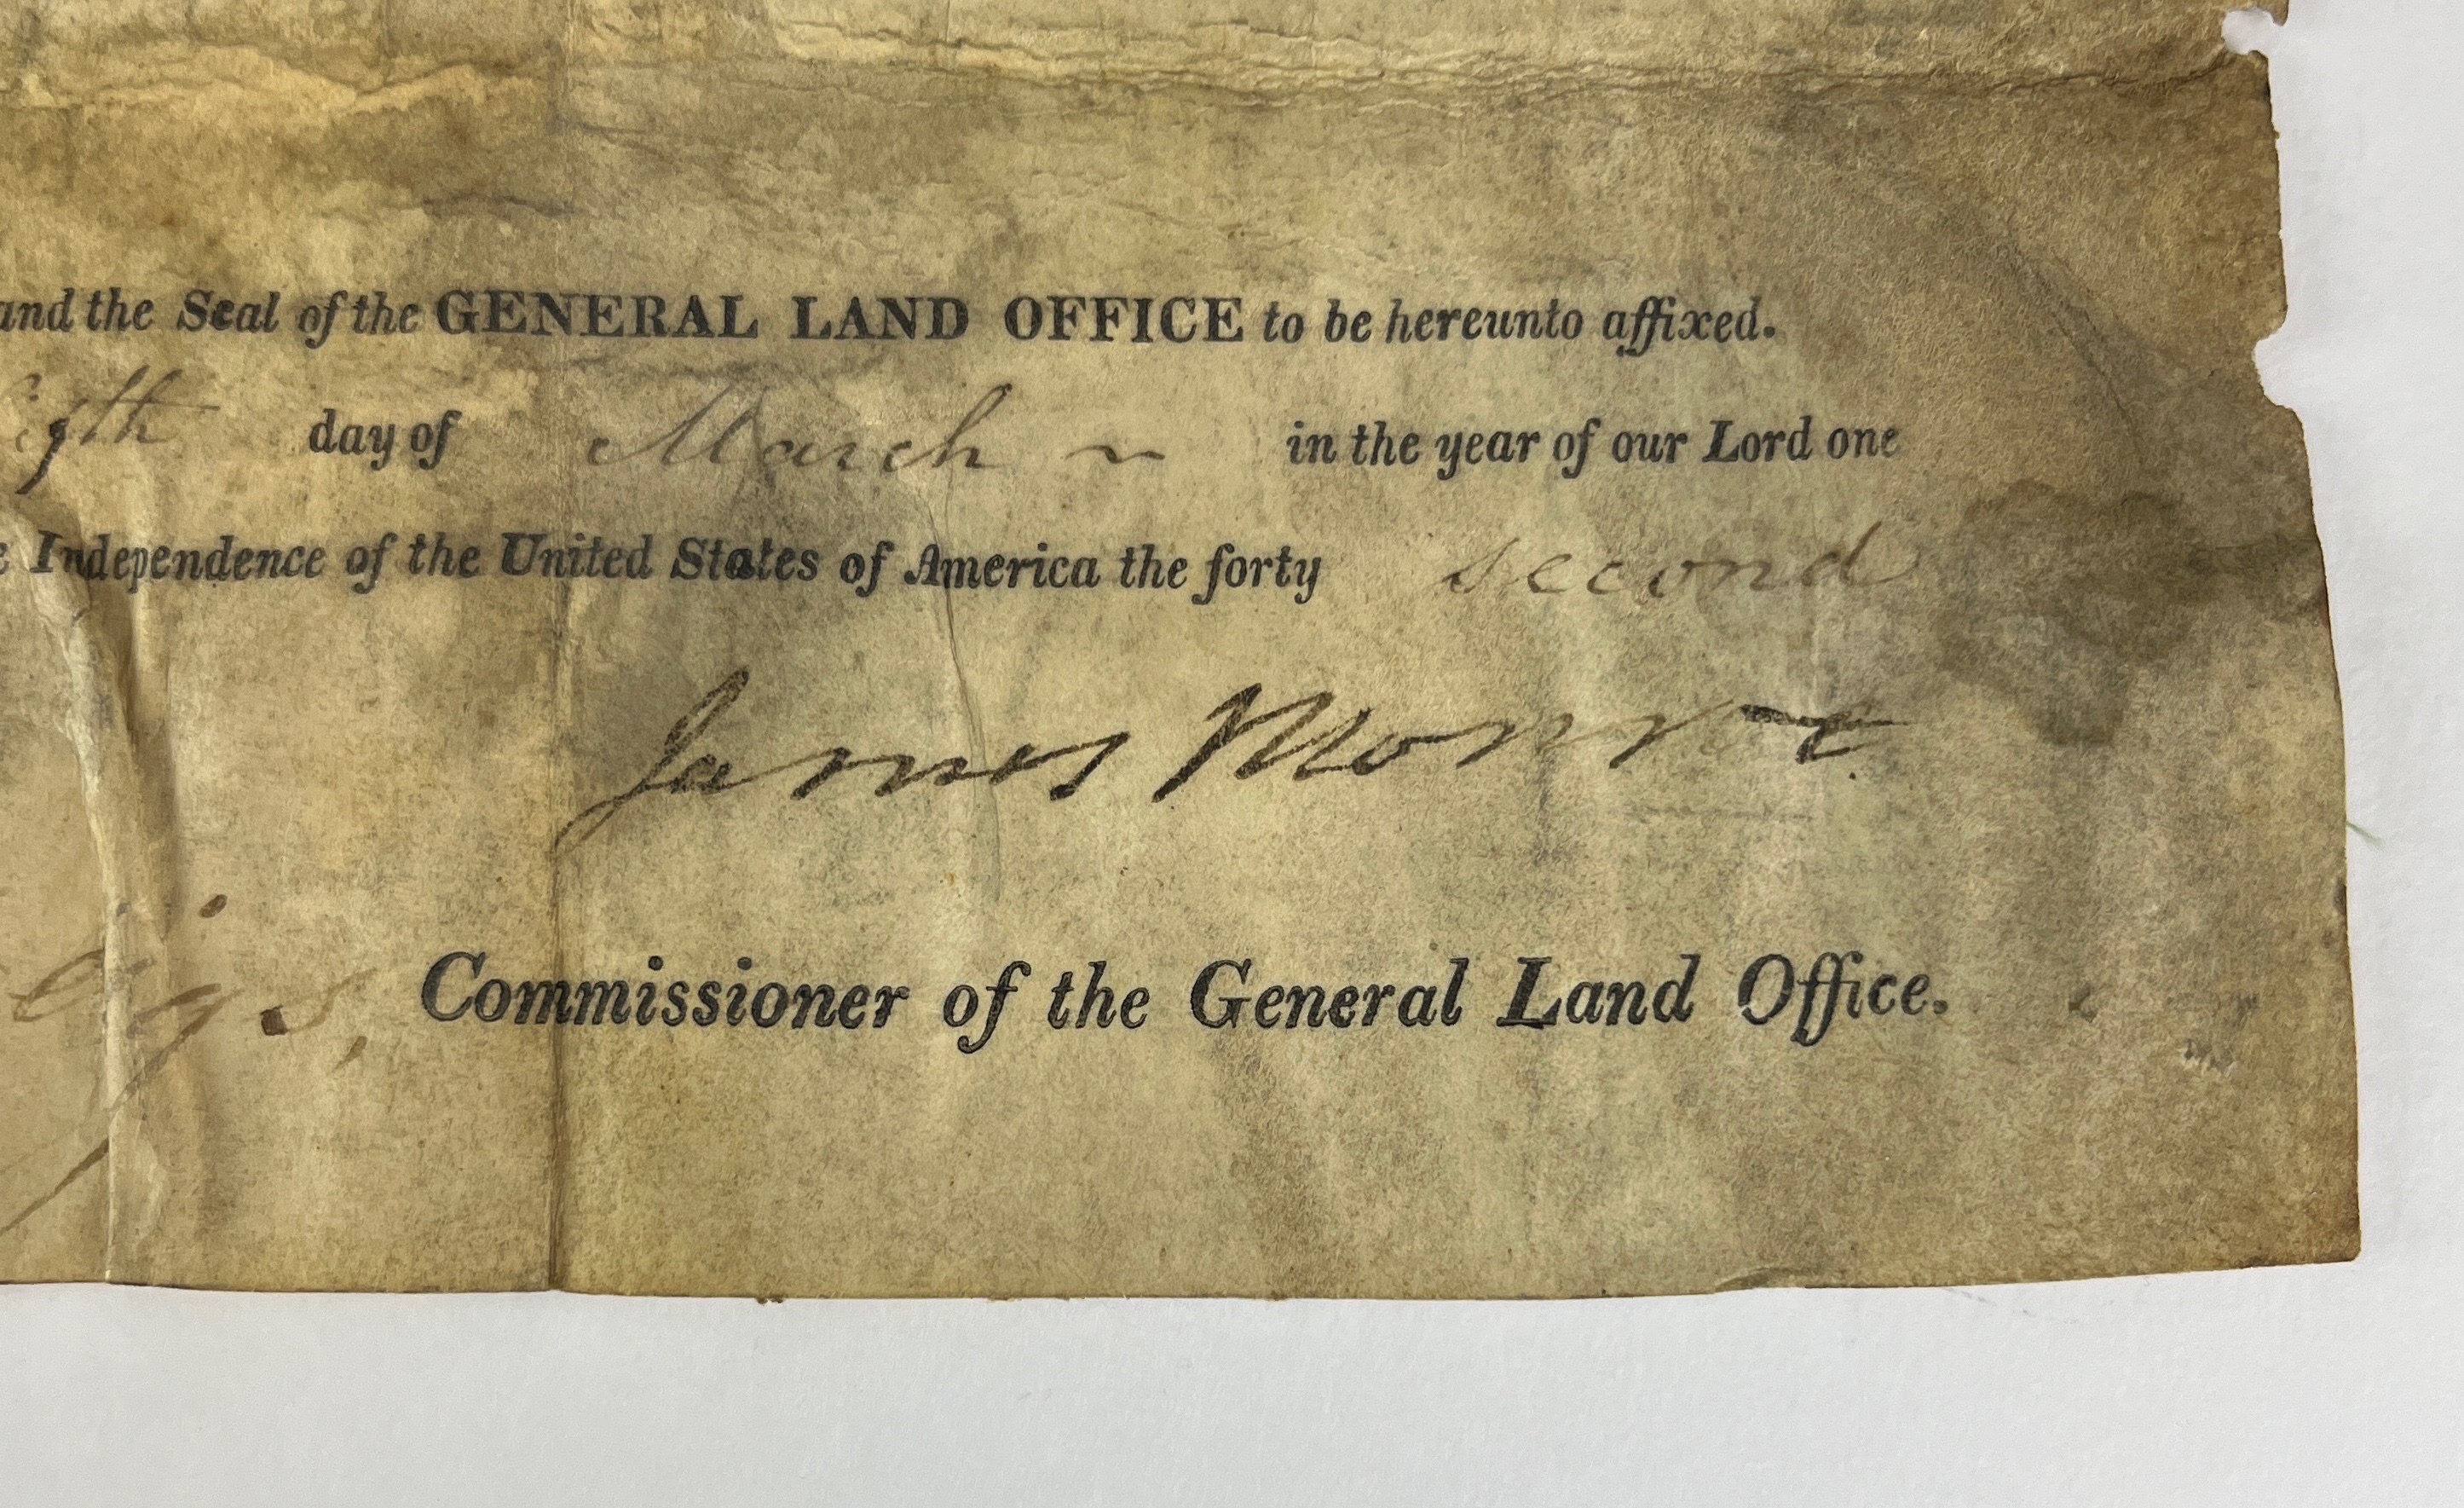 and the Seal of the GENERAL LAND OFFICE to be hereunto affixed.
day of March in the year of our Lord one
Independence of the United States of America the forty second
James Monroe
Commissioner of the General Land Office.